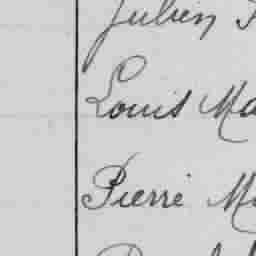 Julien
Louis Ma
Pierre Ma